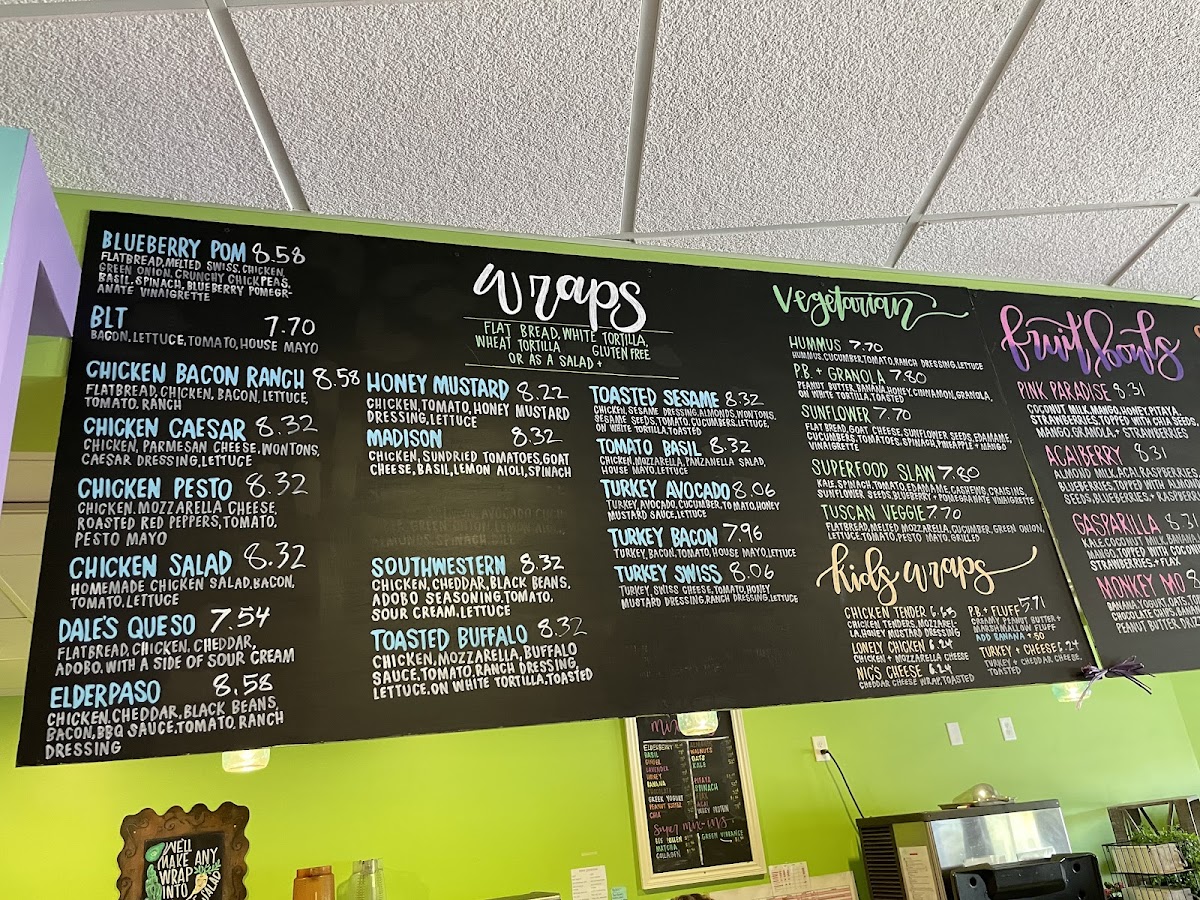 BLUEBERRY POM 8.58
FLATBREAD, MELTED SWISS, CHICKEN,
GREEN ONION, CRUNCHY CHICKPEAS,
BASIL, SPINACH, BLUEBERRY POMEGR-
ANATE VINAIGRETTE
BLT 7.70
BACON, LETTUCE, TOMATO, HOUSE MAYO
CHICKEN BACON RANCH 8.58
FLATBREAD, CHICKEN, BACON, LETTUCE,
TOMATO, RANCH
CHICKEN CAESAR 8.32
CHICKEN, PARMESAN CHEESE, WONTONS,
CAESAR DRESSING, LETTUCE
CHICKEN PESTO 8.32
CHICKEN, MOZZARELLA CHEESE,
ROASTED RED PEPPERS, TOMATO,
PESTO MAYO
CHICKEN SALAD 8.32
HOMEMADE CHICKEN SALAD, BACON,
TOMATO, LETTUCE
DALE'S QUESO 7.54
FLATBREAD, CHICKEN, CHEDDAR,
ADOBO, WITH A SIDE OF SOUR CREAM
ELDERPASO 8.58
CHICKEN, CHEDDAR, BLACK BEANS,
BACON, BBQ SAUCE, TOMATO, RANCH
DRESSING
wraps
FLAT BREAD, WHITE TORTILLA,
WHEAT TORTILLA GLUTEN FREE
OR AS A SALAD +
HONEY MUSTARD 8.22
CHICKEN, TOMATO, HONEY MUSTARD
DRESSING, LETTUCE
MADISON 8.32
CHICKEN, SUNDRIED TOMATOES, GOAT
CHEESE, BASIL, LEMON AIOLI, SPINACH
SOUTHWESTERN 8.32
CHICKEN, CHEDDAR, BLACK BEANS,
ADOBO SEASONING, TOMATO,
SOUR CREAM, LETTUCE
TOASTED BUFFALO 8.32
CHICKEN, MOZZARELLA, BUFFALO
SAUCE, TOMATO, RANCH DRESSING,
LETTUCE, ON WHITE TORTILLA, TOASTED
TOASTED SESAME 8.32
CHICKEN, SESAME DRESSING, ALMONDS, WONTONS,
SESAME SEEDS, TOMATO, CUCUMBERS, LETTUCE,
ON WHITE TORTILLA, TOASTED
TOMATO BASIL 8.32
CHICKEN, MOZZARELLA, PANZANELLA SALAD,
HOUSE MAYO, LETTUCE
TURKEY AVOCADO 8.06
TURKEY, AVOCADO, CUCUMBER, TOMATO, HONEY
MUSTARD SAUCE, LETTUCE
TURKEY BACON 7.96
TURKEY, BACON, TOMATO, HOUSE MAYO, LETTUCE
TURKEY SWISS 8.06
TURKEY, SWISS CHEESE, TOMATO, HONEY
MUSTARD DRESSING, RANCH DRESSING, LETTUCE
Vegetarian
HUMMUS 7.70
HUMMUS, CUCUMBER, TOMATO, RANCH DRESSING, LETTUCE
P.B. + GRANOLA 7.80
PEANUT BUTTER, BANANA, HONEY, CINNAMON, GRANOLA,
ON WHITE TORTILLA, TOASTED
SUNFLOWER 7.70
FLAT BREAD, GOAT CHEESE, SUNFLOWER SEEDS, EDAMAME,
CUCUMBERS, TOMATOES, SPINACH, PINEAPPLE + MANGO
VINAIGRETTE
SUPERFOOD SLAW 7.80
KALE, SPINACH, TOMATO, EDAMAME, CASHEWS, CRAISINS,
SUNFLOWER SEEDS, BLUEBERRY + POMEGRANATE VINAIGRETTE
TUSCAN VEGGIE 7.70
FLATBREAD, MELTED MOZZARELLA, CUCUMBER, GREEN ONION,
LETTUCE, TOMATO, PESTO MAYO, GRILLED
kids wraps
CHICKEN TENDER 6.65
CHICKEN TENDERS, MOZZAREL-
LA, HONEY MUSTARD DRESSING
LONELY CHICKEN 6.24
CHICKEN + MOZZARELLA CHEESE
NIC'S CHEESE 6.24
CHEDDAR CHEESE WRAP, TOASTED
P.B. + FLUFF 5.71
CREAMY PEANUT BUTTER +
MARSHMALLOW FLUFF
ADD BANANA +.50
TURKEY + CHEESE 6.24
TURKEY + CHEDDAR CHEESE,
TOASTED
fruit bowls
PINK PARADISE 8.31
COCONUT MILK, MANGO, HONEY, PITAYA,
STRAWBERRIES, TOPPED WITH CHIA SEEDS,
MANGO, GRANOLA + STRAWBERRIES
ACAIBERRY 8.31
ALMOND MILK, ACAI, RASPBERRIES
BLUEBERRIES, TOPPED WITH ALMOND
SEEDS, BLUEBERRIES + RASPBERR
GASPARILLA 8.3
KALE, COCONUT MILK, BANANA
MANGO, TOPPED WITH COCONU
STRAWBERRIES, + FLAX
MONKEY MO 8
BANANA, YOGURT, OATS,
CHOCOLATE CHIPS,
PEANUT BUTTER DRI
WE'LL
MAKE ANY
WRAP
INTO
SALAD
ELDERBERRY
BASIL
GINGER
LAVENDER
HONEY
BANANA
GREEK YOGURT
PEANUT BUTTER
CHIA
WALNUTS
OATS
KALE
PITAYA
SPINACH
ACAI
WHEY PROTEIN
Super mix-ins
BEE POLLEN
MATCHA
COLLAGEN
GREEN VIBRANCE